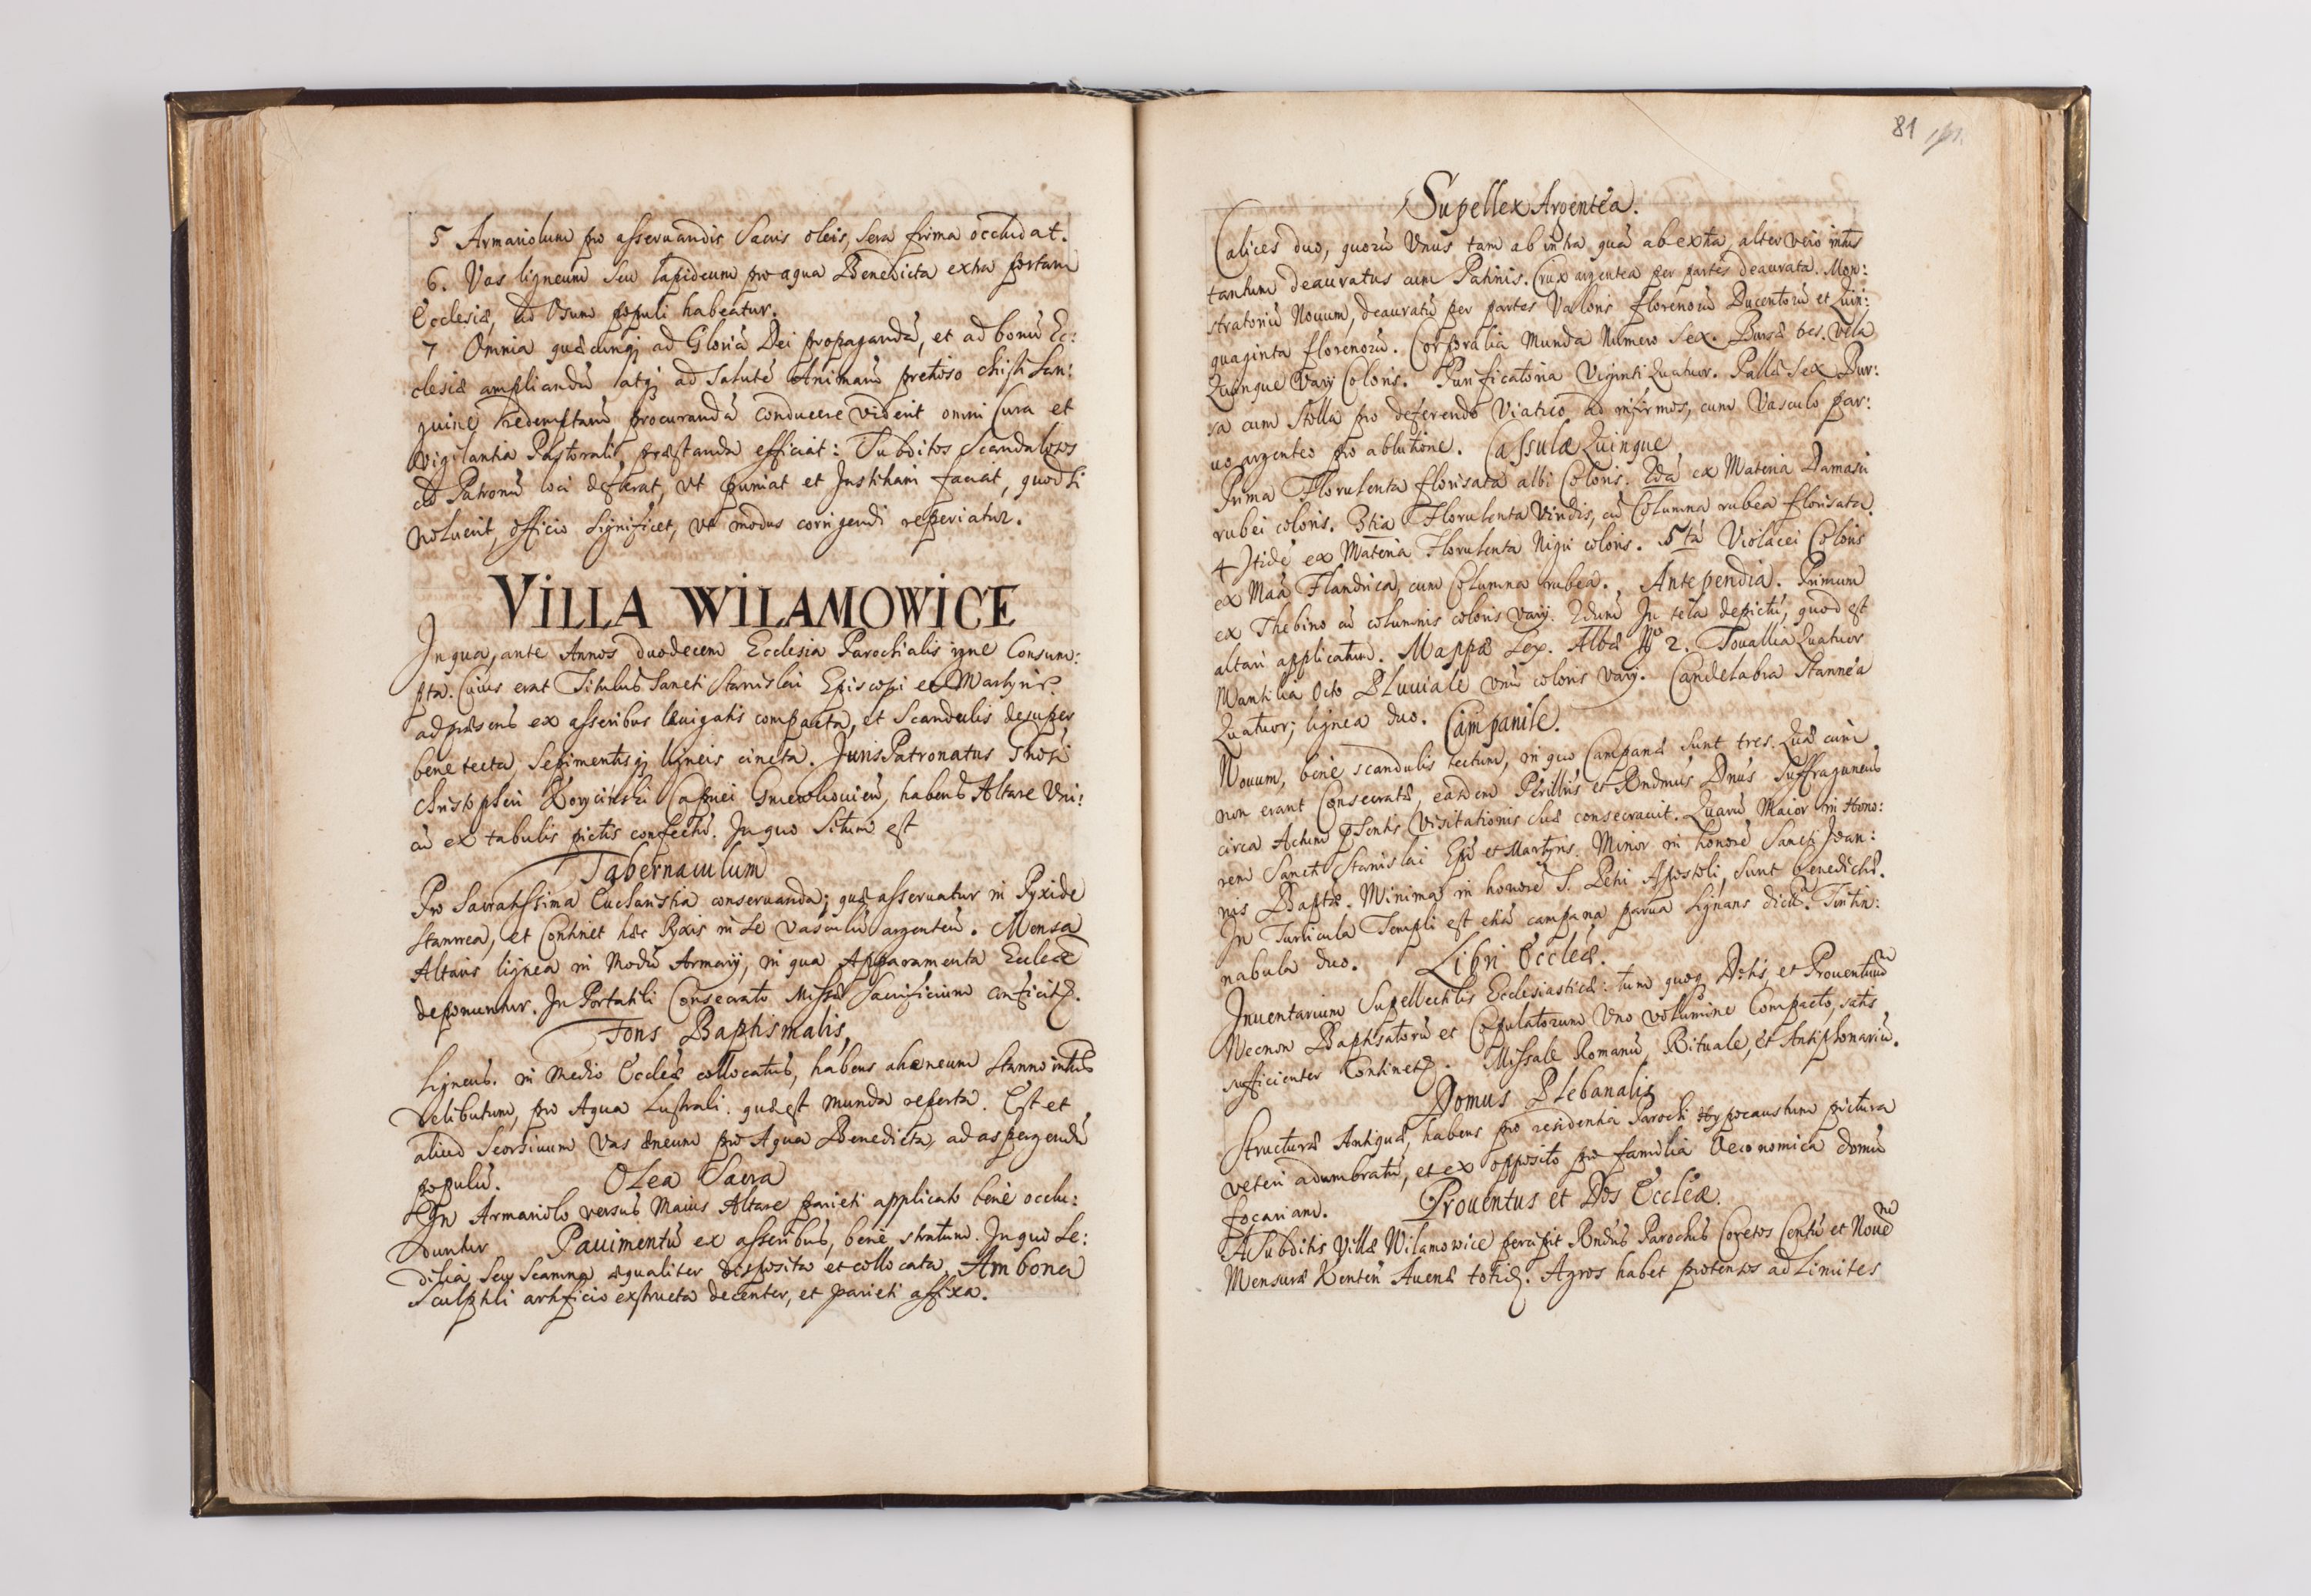 5 Armariolum pro asseruandis Sacris oleis, sera firma occludat.
6. Vas ligneum seu lapideum pro aqua Benedicta extra portam
Ecclesiæ, ad Vsum populi habeatur.
7 Omnia quæcunq; ad Gloriã Dei propagandã, et ad bonũ Ec:
clesiæ ampliandũ atq; ad salutẽ Animarũ pretioso Christi San:
guine redemptarũ procurandã conducere viderit omni Cura et
vigilantia Pastorali præstanda efficiat: Subditos Scandalosos
ad Patronũ loci deferat, vt puniat et Justitiam faciat, quod si
noluerit, officio significet, vt modus corrigendi reperiatur.
VILLA WILAMOWICE
In qua, ante Annos duodecem Ecclesia Parochialis igne Consum:
pta. Cuius erat Titulus Sancti Stanislai Episcopi et Martyris.
ad præsens ex asseribus læuigatis compacta, et Scandulis desuper
bene tecta, Sepimentisq; ligneis cincta. Juris Patronatus
Christopheri habens Altare Vni:
cũ ex tabulis pictis confectũ. In quo Situm est
Tabernaculum
Pro Sacratissima Eucharistia conseruanda; quæ asseruatur in Pyxide
stannea, et Continet hæc Pyxis in se vasculũ argenteũ. Mensa
Altaris lignea in Modũ Armarij, in qua Apparamenta Eccleæ
deponuntur. In Portatili Consecrato Missæ Sacrificium conficitr.
Fons Baptismalis,
Ligneus. in Medio Eccleæ collocatus, habens aheneum stanno intus
delibutum, pro Aqua Lustrali. quæ est munda referta. Est et
aliud Seorsiuum Vas æneum pro Aqua Benedicta, ad aspergendũ
populũ. Olea Sacra
In Armariolo versus Maius Altare parieti applicato bene occlu:
duntur Pauimentũ ex asseribus, bene stratum. In quo Se:
dilia, seu Scamna æqualiter disposita et collocata, Ambona
Sculptili artificio exstructa decenter, et parieti affixa.
81
Supellex Argentea.
Calices duo, quorũ Vnus tam ab intra, quã ab extra, alter vero intus
tantum deauratus cum Patinis. Crux argentea per partes deaurata. Mon:
stratoriũ Nouum, deauratũ per partes Valoris florenorũ Ducentorũ et Quin:
quaginta florenorũ. Corporalia Munda Numero Sex. Bursæ tres. Vela
Quinque Varij Coloris. Purificatoria Viginti Quatuor. Pallæ Sex Bur:
sa cum Stolla pro deferendo Viatico ad infirmos, cum Vasculo par:
uo argenteo pro ablutione. Cassulæ Quinque
Prima Florulenta florisata albi Coloris. 2da ex Materia Damasci
rubei coloris. 3tia Florulenta Viridis, cũ Columna rubea florisata.
4 Itidẽ ex Materia Florulenta Nigri coloris. 5ta Violacei Coloris
ex Maã Flandrica, cum Columna rubea. Antependia. Primum
ex Thebino cũ columnis coloris Varij. 2dum In tela depictũ, quod est
altari applicatum. Mappæ Sex. Albæ No 2. Touallia Quatuor
Mantilia Octo Pluuiale vnũ coloris Varij. Candelabra Stannea
Quatuor; lignea duo. Campanile.
Nouum, bene scandulis tectum, in quo Campanæ Sunt tres. Quæ cum
non erant Consecratæ, easdem Perillris et Rndmus Dnus Suffraganeus
circa Actum pñtis Visitationis suæ consecrauit. Quarũ Maior in Hono:
rem Sancti Stanislai Epi et Martyris. Minor in honorẽ Sancti Joan:
nis Baptæ. Minima in honorẽ S. Petri Apostoli, Sunt benedictæ.
In Turricula Templi est etiã campana parua Signans dicta. Tintin:
nabula duo. Libri Eccleæ.
Inuentarium Supellectilis Ecclesiasticæ: tum quoq; Dotis, et Prouentuum
Necnon Baptisatorũ et Copulatorum Vno volumine Compacto, satis
sufficienter Continetr. Missale Romanũ, Rituale, et Antiphonariũ.
Domus Plebanalis
Structuræ Antiquæ, habens pro residentia Parochi Hypocaustum pictura
veteri adumbratũ, et ex opposito pro familia Oeconomica domũ
focariam. Prouentus et Dos Eccleæ.
A Subditis Villæ Wilamowice percipit Rndus Parochus Coretos Centũ et Nouem
Mensuræ Auenæ totid. Agros habet protensos ad Limites